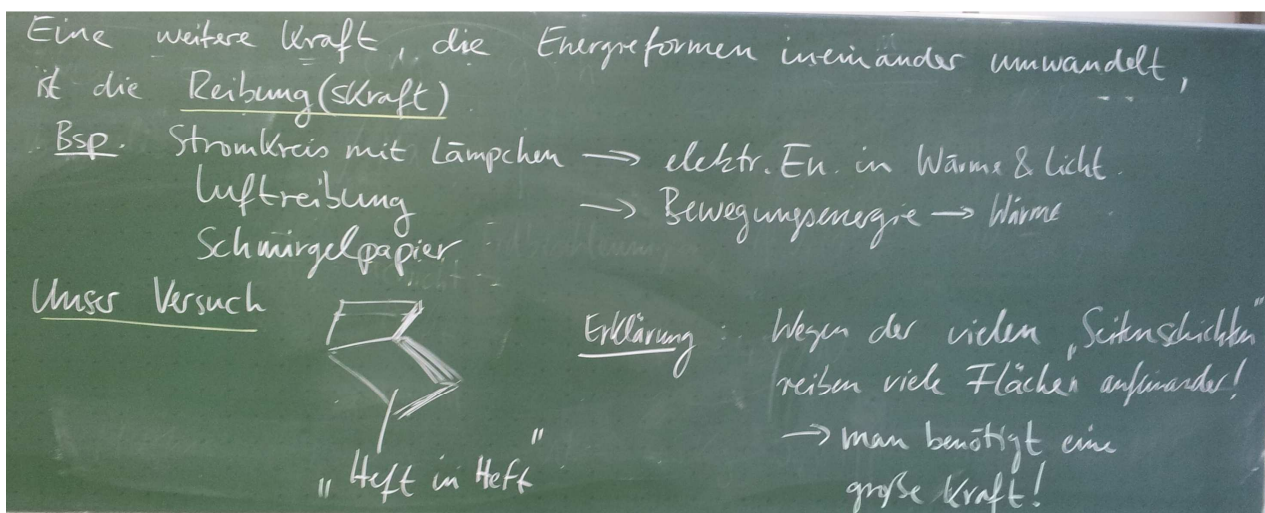 Eine weitere Kraft, die Energieformen ineinander umwandelt,
ist die Reibung(skraft)
Bsp. Stromkreis mit Lämpchen → elektr. En. in Wärme & Licht.
Luftreibung → Bewegungsenergie → Wärme
Schmirgelpapier
Unser Versuch
"Heft in Heft"
Erklärung: Wegen der vielen „Seitenschichten"
reiben viele Flächen aufeinander!
→ man benötigt eine
große Kraft!